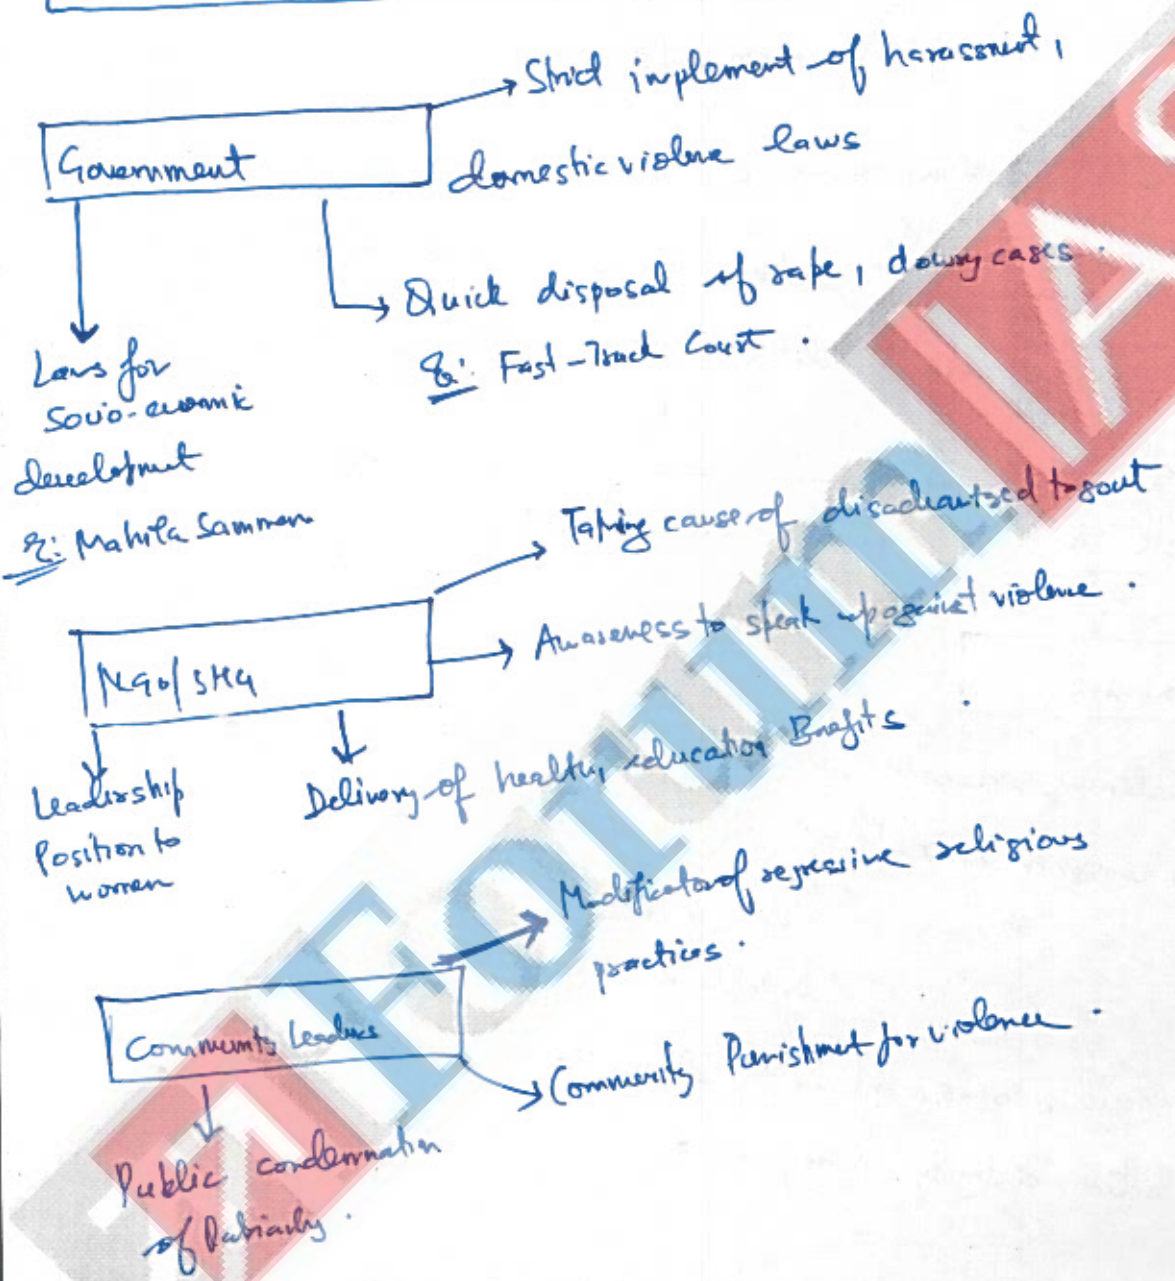 Government
Strict implement of harassment,
domestic violence laws
Quick disposal of rape, dowry cases.
Ex: Fast-Track Court.
Laws for
Socio-economic
development
Ex: Mahila Samman
NGO/SHG
Taking cause of
Awareness to speak up against violence.
Delivery of health, education Benefits.
Leadership
Position to
women
Community Leaders
Modification of regressive religious
practices.
Community Punishment for violence.
Public condemnation
of Patriarchy.
Forum IAS